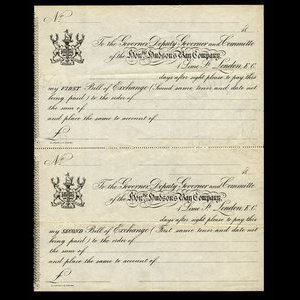 No
18
To the Governor, Deputy Governor and Committee
of the Honble Hudson's Bay Company,
1 Lime St. London, E.C.
days after sight please to pay this
my FIRST Bill of Exchange (Second same tenor and date not
being paid) to the order of
the sum of
and place the same to account of
£
No
18
To the Governor, Deputy Governor and Committee
of the Honble Hudson's Bay Company,
1 Lime St. London, E.C.
days after sight please to pay this
my SECOND Bill of Exchange (First same tenor and date not
being paid) to the order of
the sum of
and place the same to account of
£